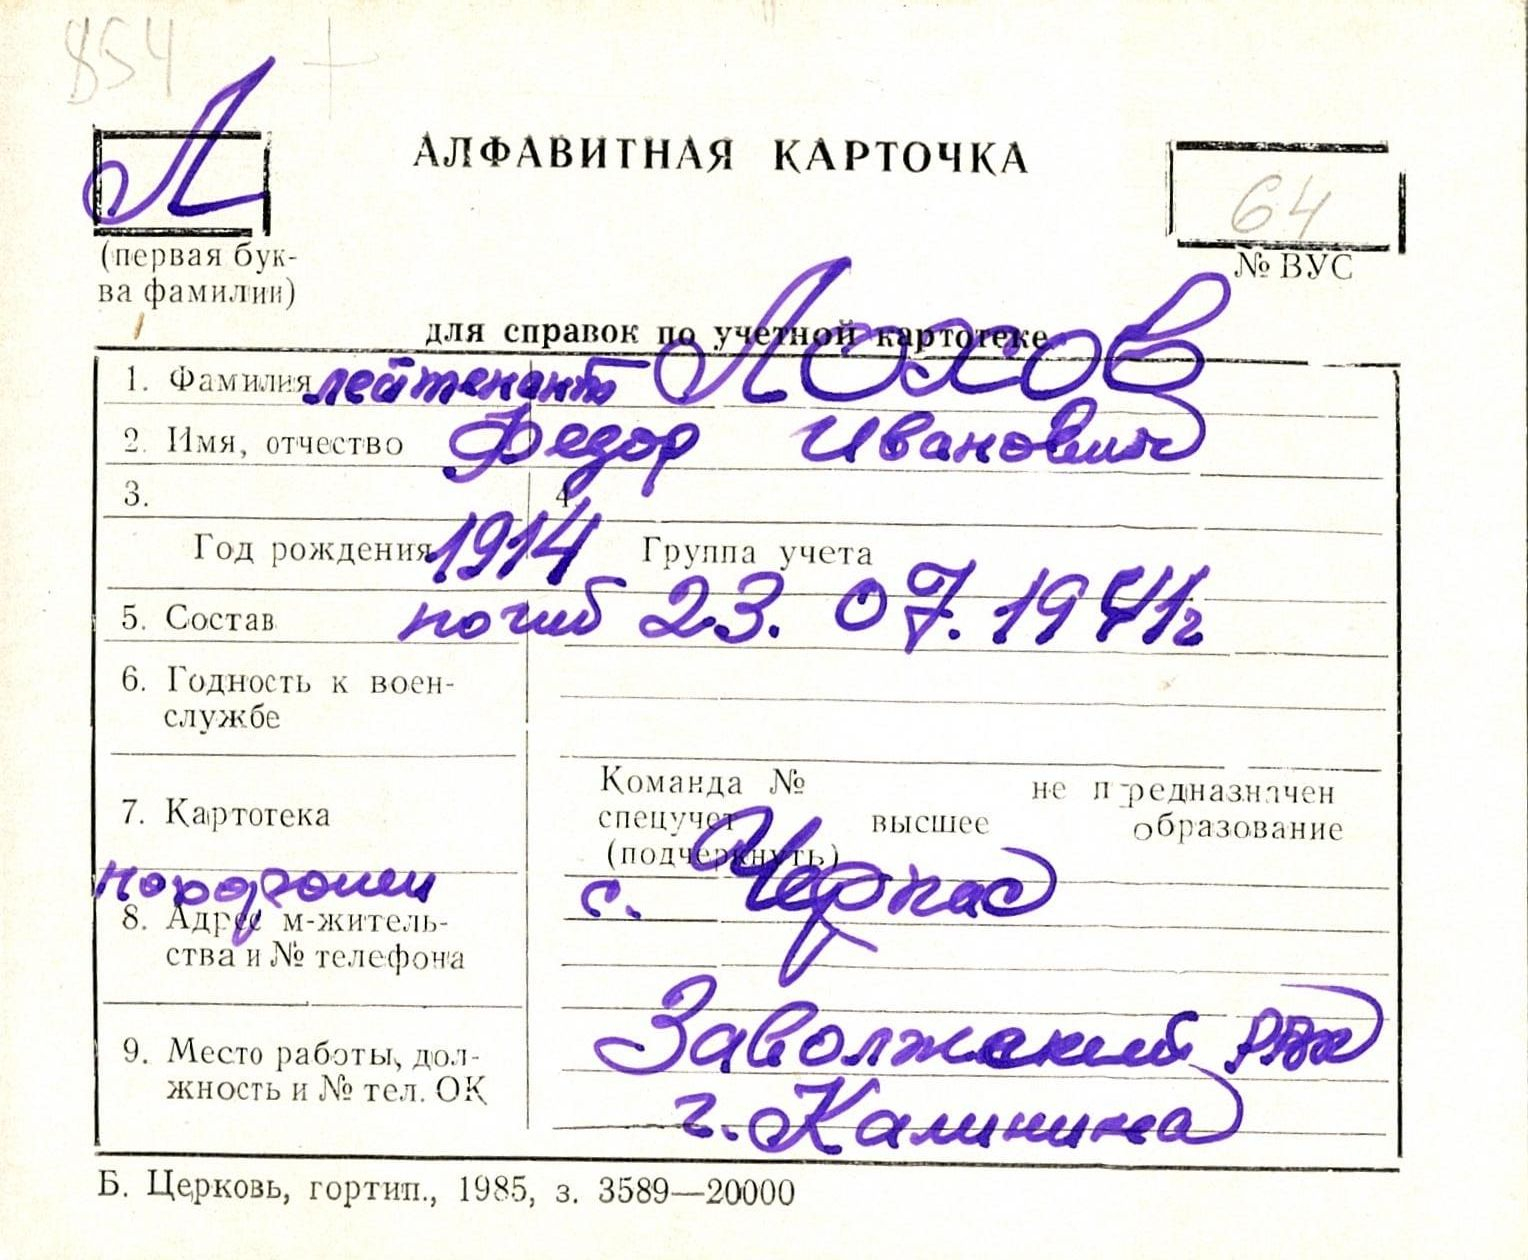 854 +
Л
АЛФАВИТНАЯ КАРТОЧКА
64
(первая бук-
ва фамилии)
№ ВУС
для справок по учетной картотеке
1. Фамилия лейтенант Лохов
2. Имя, отчество Федор Иванович
3. 4.
Год рождения 1914 Группа учета
5. Состав погиб 23.07.1941г
6. Годность к воен-
службе
7. Картотека
Команда № не предназначен
спецучет высшее образование
(подчеркнуть)
похоронен с. Черпас
8. Адрес м-житель-
ства и № телефона
9. Место работы, дол-
жность и № тел. ОК
Заволжский РВК
г. Калинина
Б. Церковь, гортип., 1985, з. 3589—20000